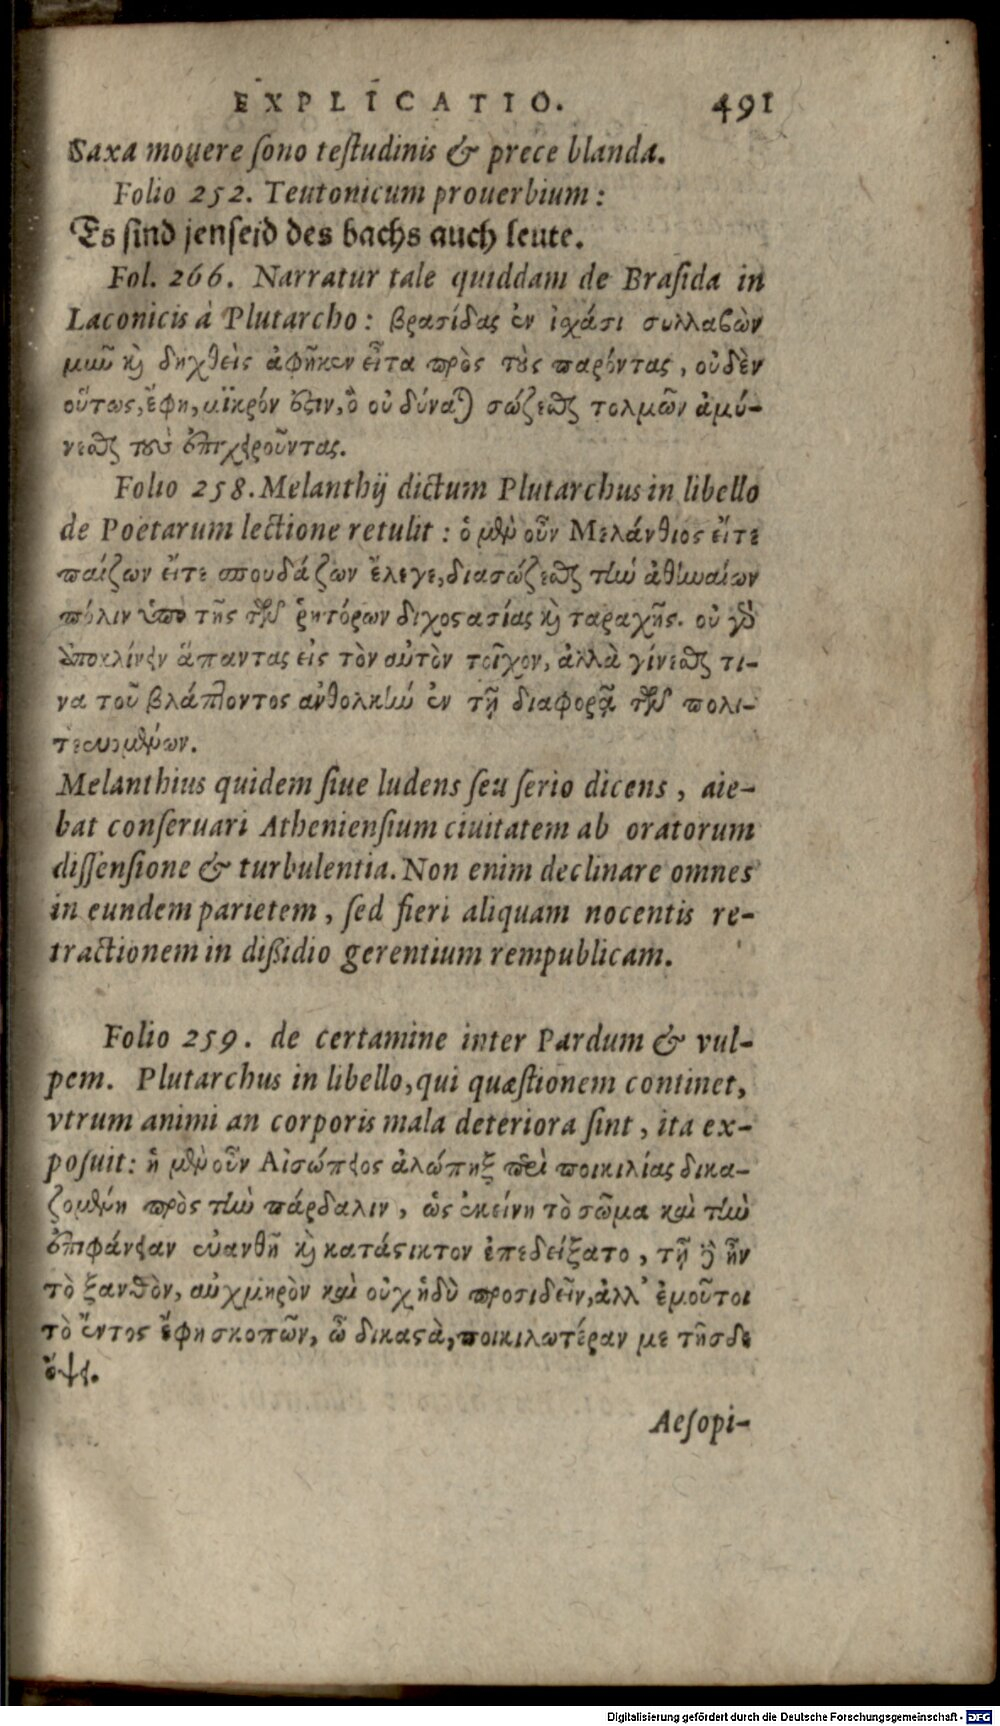 EXPLICATIO. 491
Saxa mouere ſono teſtudinis & prece blanda.
Folio 252. Teutonicum prouerbium:
Es ſind jenſeid des bachs auch leute.
Fol. 266. Narratur tale quiddam de Braſida in
Laconicis à Plutarcho: βρασίδας ἐν ἰχάσι συλλαβὼν
μῦν κὶ δηχθεὶς ἀφῆκεν εἶτα πρὸς τοὺς παρόντας, οὐδὲν
οὕτως, ἔφη, μικρόν ἐστιν, ὃ οὐ δύναται σώζεσθαι τολμῶν ἀμύ-
νεσθαι τοὺς ἐπιχειροῦντας.
Folio 258. Melanthij dictum Plutarchus in libello
de Poëtarum lectione retulit: ὁ μὲν οὖν Μελάνθιος εἴτε
παίζων εἴτε σπουδάζων ἔλεγε, διασώζεσθαι τὴν ἀθηναίων
πόλιν ὑπὸ τῆς τῶν ῥητόρων διχοστασίας κὶ ταραχῆς. οὐ γὸ
ἀποκλίνειν ἅπαντας εἰς τὸν αὐτὸν τοῖχον, ἀλλὰ γίνεσθαι τι-
να τοῦ βλάπτοντος ἀνθολκὴν ἐν τῇ διαφορᾷ τῶν πολι-
τευομένων.
Melanthius quidem ſiue ludens ſeu ſerio dicens, aie-
bat conſeruari Athenienſium ciuitatem ab oratorum
diſſenſione & turbulentia. Non enim declinare omnes
in eundem parietem, ſed fieri aliquam nocentis re-
tractionem in dißidio gerentium rempublicam.
Folio 259. de certamine inter Pardum & vul-
pem. Plutarchus in libello, qui quæſtionem continet,
vtrum animi an corporis mala deteriora ſint, ita ex-
poſuit: ἡ μὲν οὖν Αἰσώπειος ἀλώπηξ περὶ ποικιλίας δικα-
ζομένη πρὸς τὴν πάρδαλιν, ὡς ἐκείνη τὸ σῶμα καὶ τὴν
ἐπιφάνειαν εὐανθῆ κὶ κατάστικτον ἐπεδείξατο, τῇ δὲ ἦν
τὸ ξανθὸν, αὐχμηρὸν καὶ οὐχ ἡδὺ προσιδεῖν, ἀλλ' ἐμοῦτοι
τὸ ἐντος ἔφη σκοπῶν, ὦ δικαστὰ, ποικιλωτέραν με τῆσδε
ὄψει.
Aeſopi-
Digitalisierung gefördert durch die Deutsche Forschungsgemeinschaft - DFG